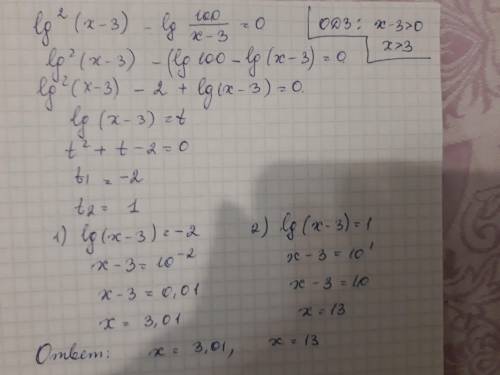 lg² (x-3) - lg 100/(x-3) = 0
ОДЗ: x-3>0
x>3
lg² (x-3) - (lg 100 - lg (x-3) = 0
lg² (x-3) - 2 + lg (x-3) = 0.
lg (x-3) = t
t² + t - 2 = 0
t₁ = -2
t₂ = 1
1) lg (x-3) = -2
x-3 = 10⁻²
x-3 = 0,01
x = 3,01
2) lg (x-3) = 1
x-3 = 10¹
x-3 = 10
x = 13
Ответ: x = 3,01, x = 13